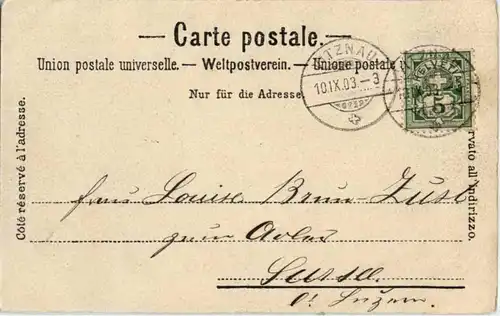 — Carte postale. —
Union postale universelle. — Weltpostverein. — Unione postale u
Nur für die Adresse.
TZNAU
10.IX.03.—3
HELVETIA
5
Côté réservé à l'adresse.
rvato all'indirizzo.
Frau Louise Brun-Züst
zum Adler
Sursee
Ct. Luzern.